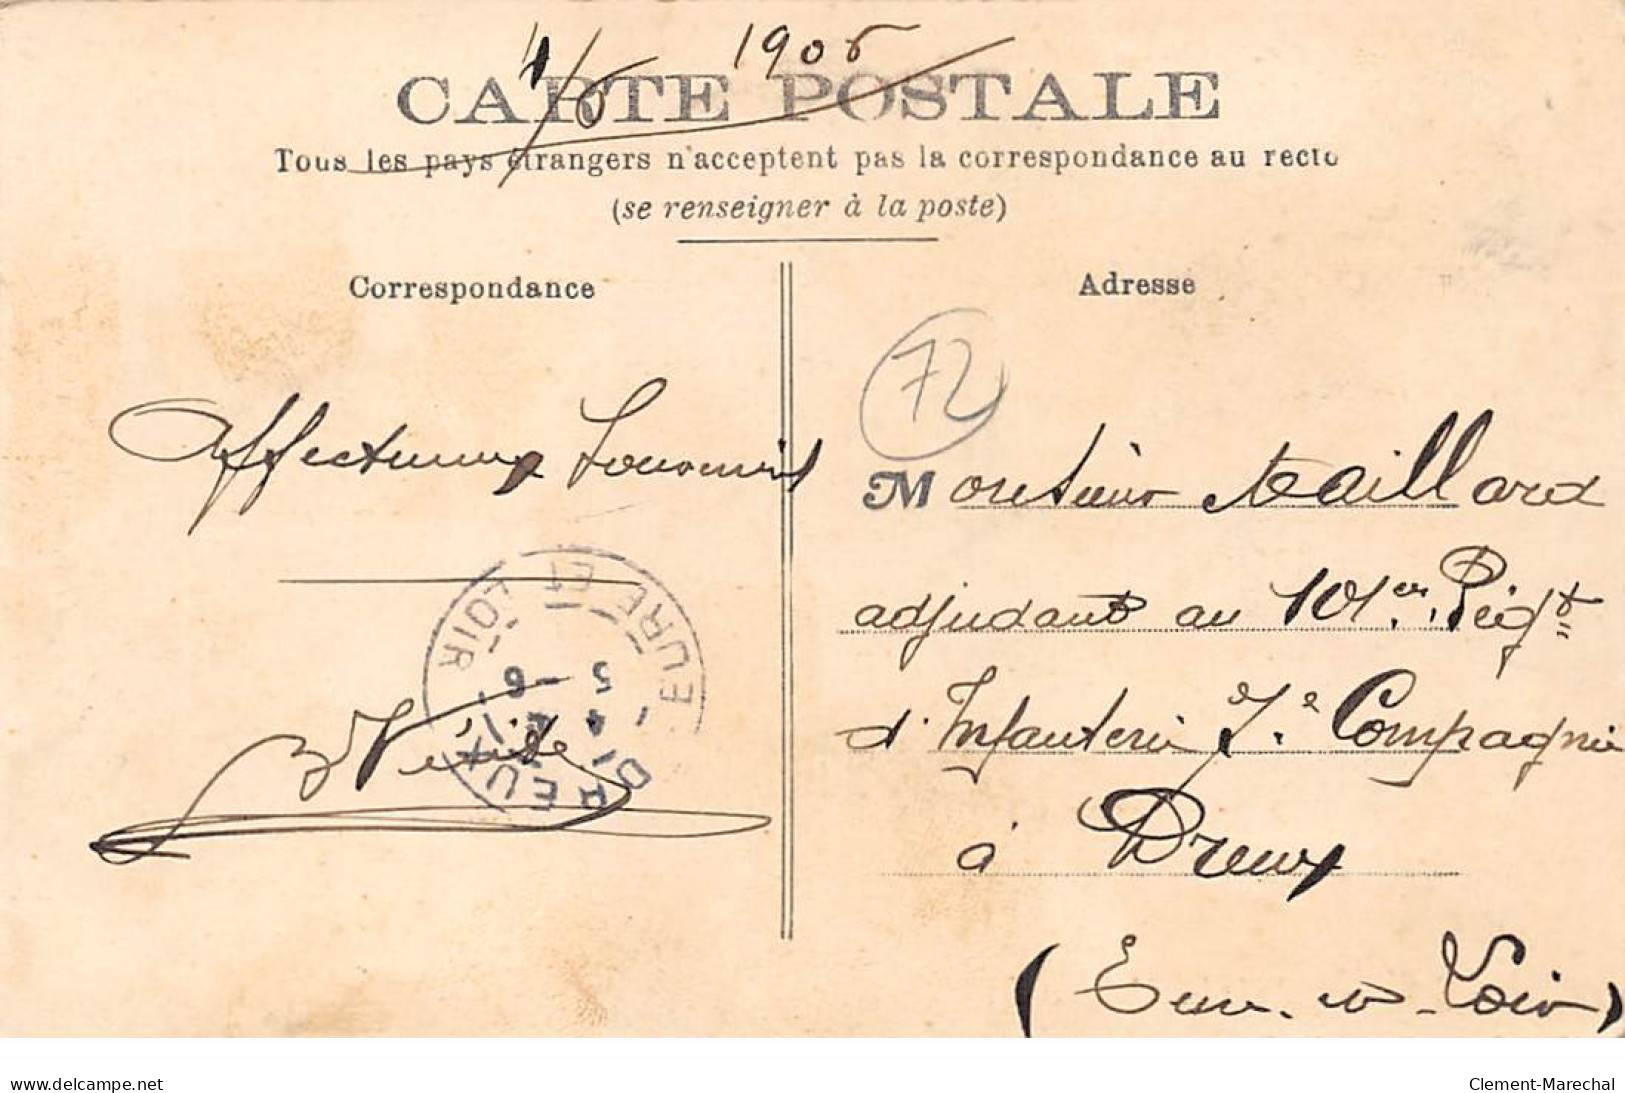 4/6 1905
CARTE POSTALE
Tous les pays étrangers n'acceptent pas la correspondance au recto
(se renseigner à la poste)
Correspondance
Adresse
72
Affectueux Souvenirs
Monsieur Maillard
adjudant au 101er Régt
d'Infanterie 7e Compagnie
à Dreux
(Eure-et-Loir)
DREUX
EURE ET LOIR
www.delcampe.net
Clement-Marechal